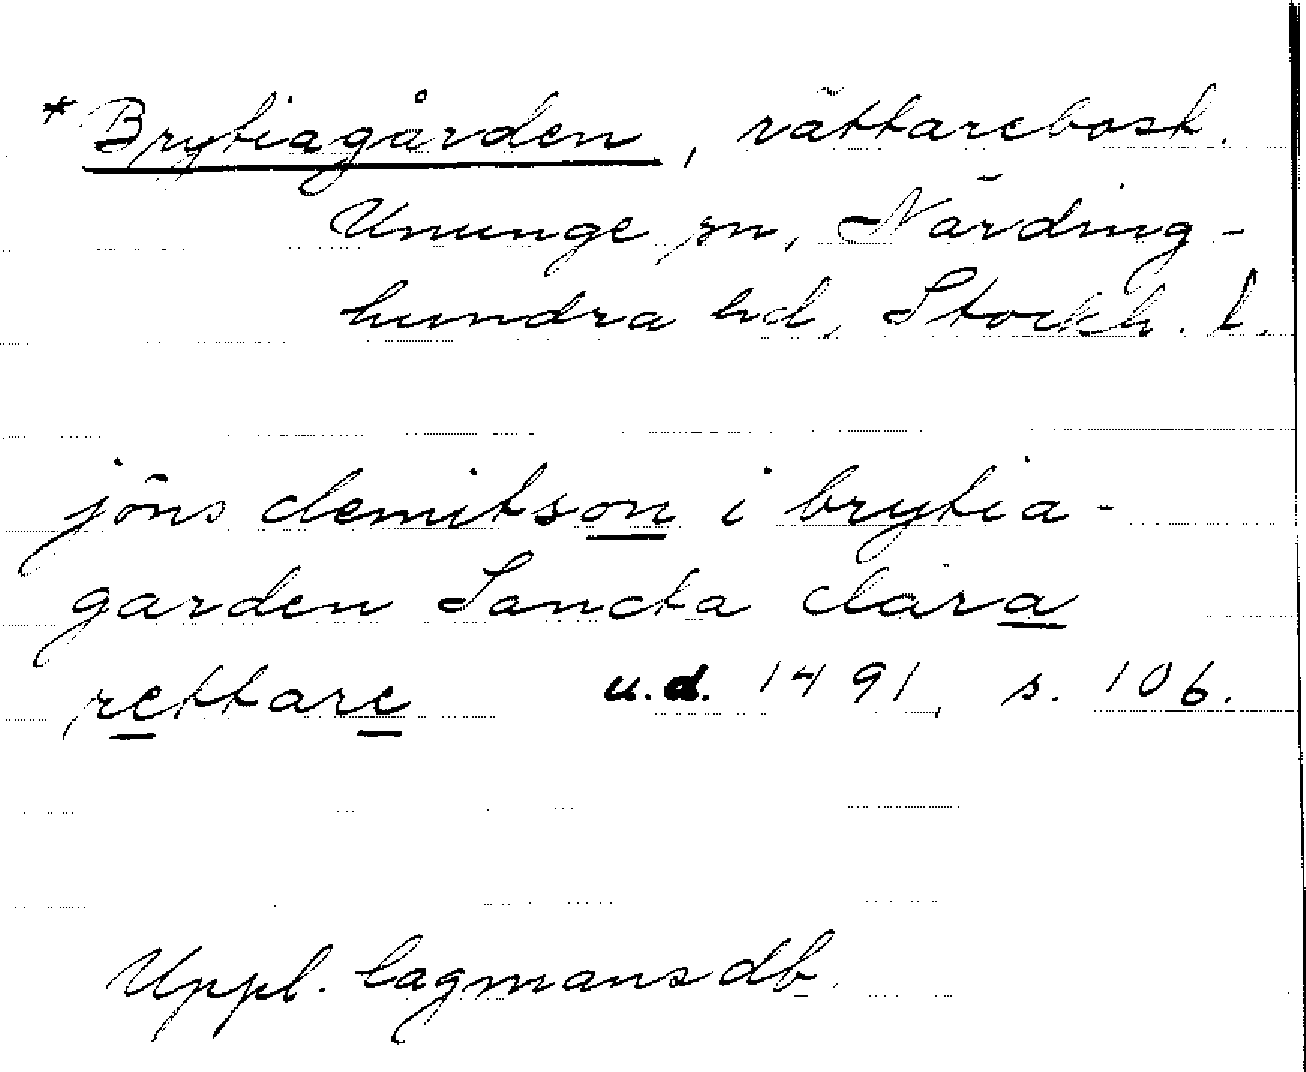 *Brytiagården, rättarebost.
Ununge sn, Närding-
hundra hd, Stockh. l.
jöns clemitson i brytia-
garden Sancta clara
rettare u.d. 1491, s. 106.
Uppl. lagmansdb.